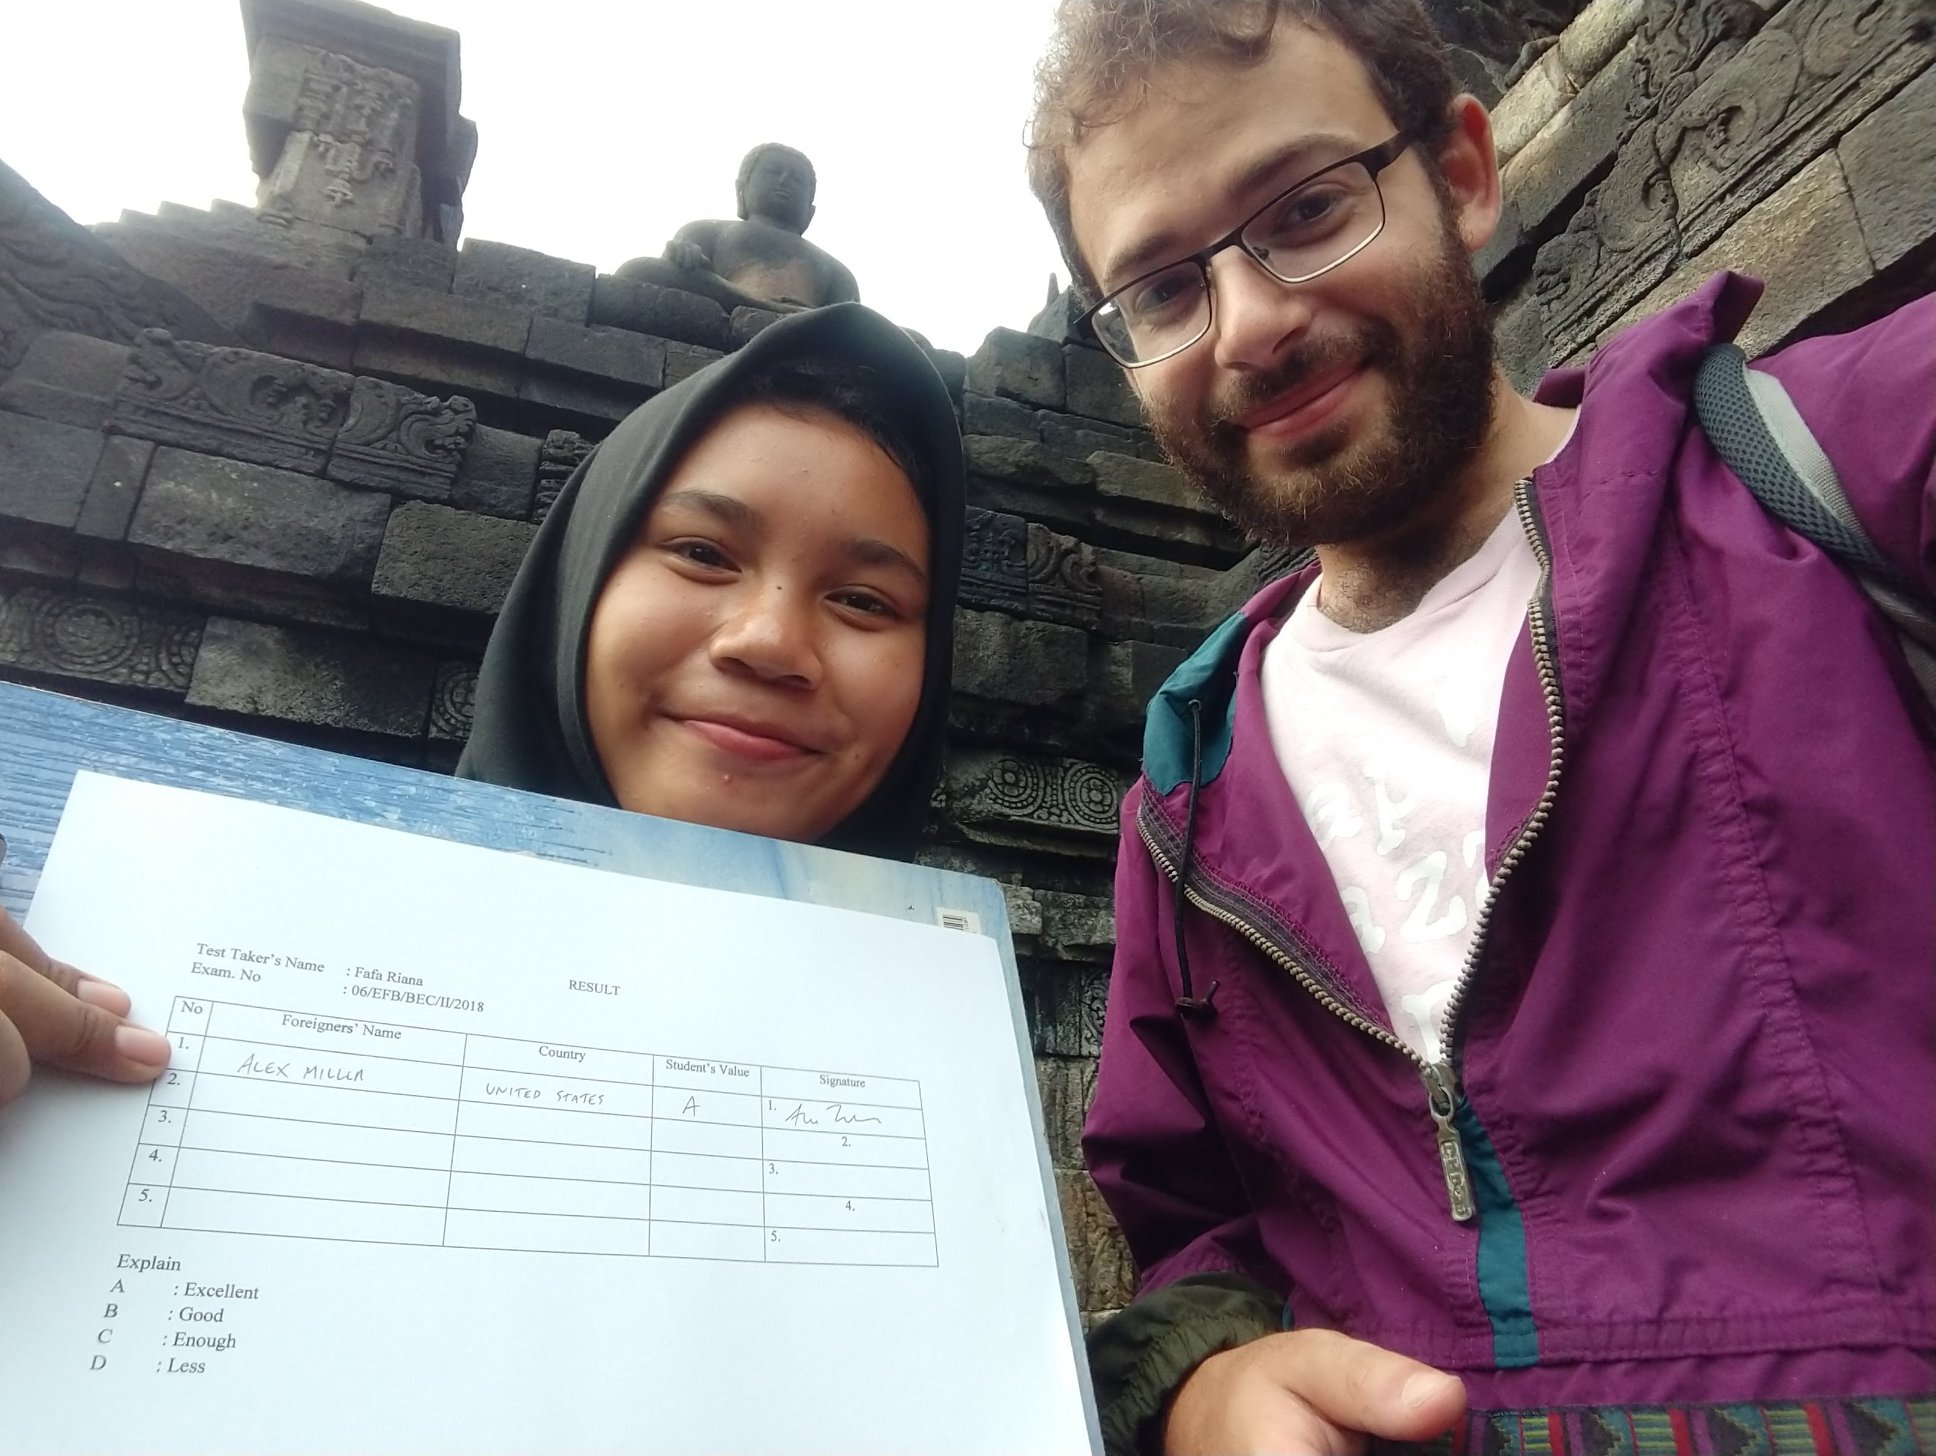 Test Taker's Name : Fafa Riana
Exam. No : 06/EFB/BEC/II/2018
RESULT
No Foreigners' Name Country Student's Value Signature
1. ALEX MILLER UNITED STATES A 1.
2. 2.
3. 3.
4. 4.
5. 5.
Explain
A : Excellent
B : Good
C : Enough
D : Less